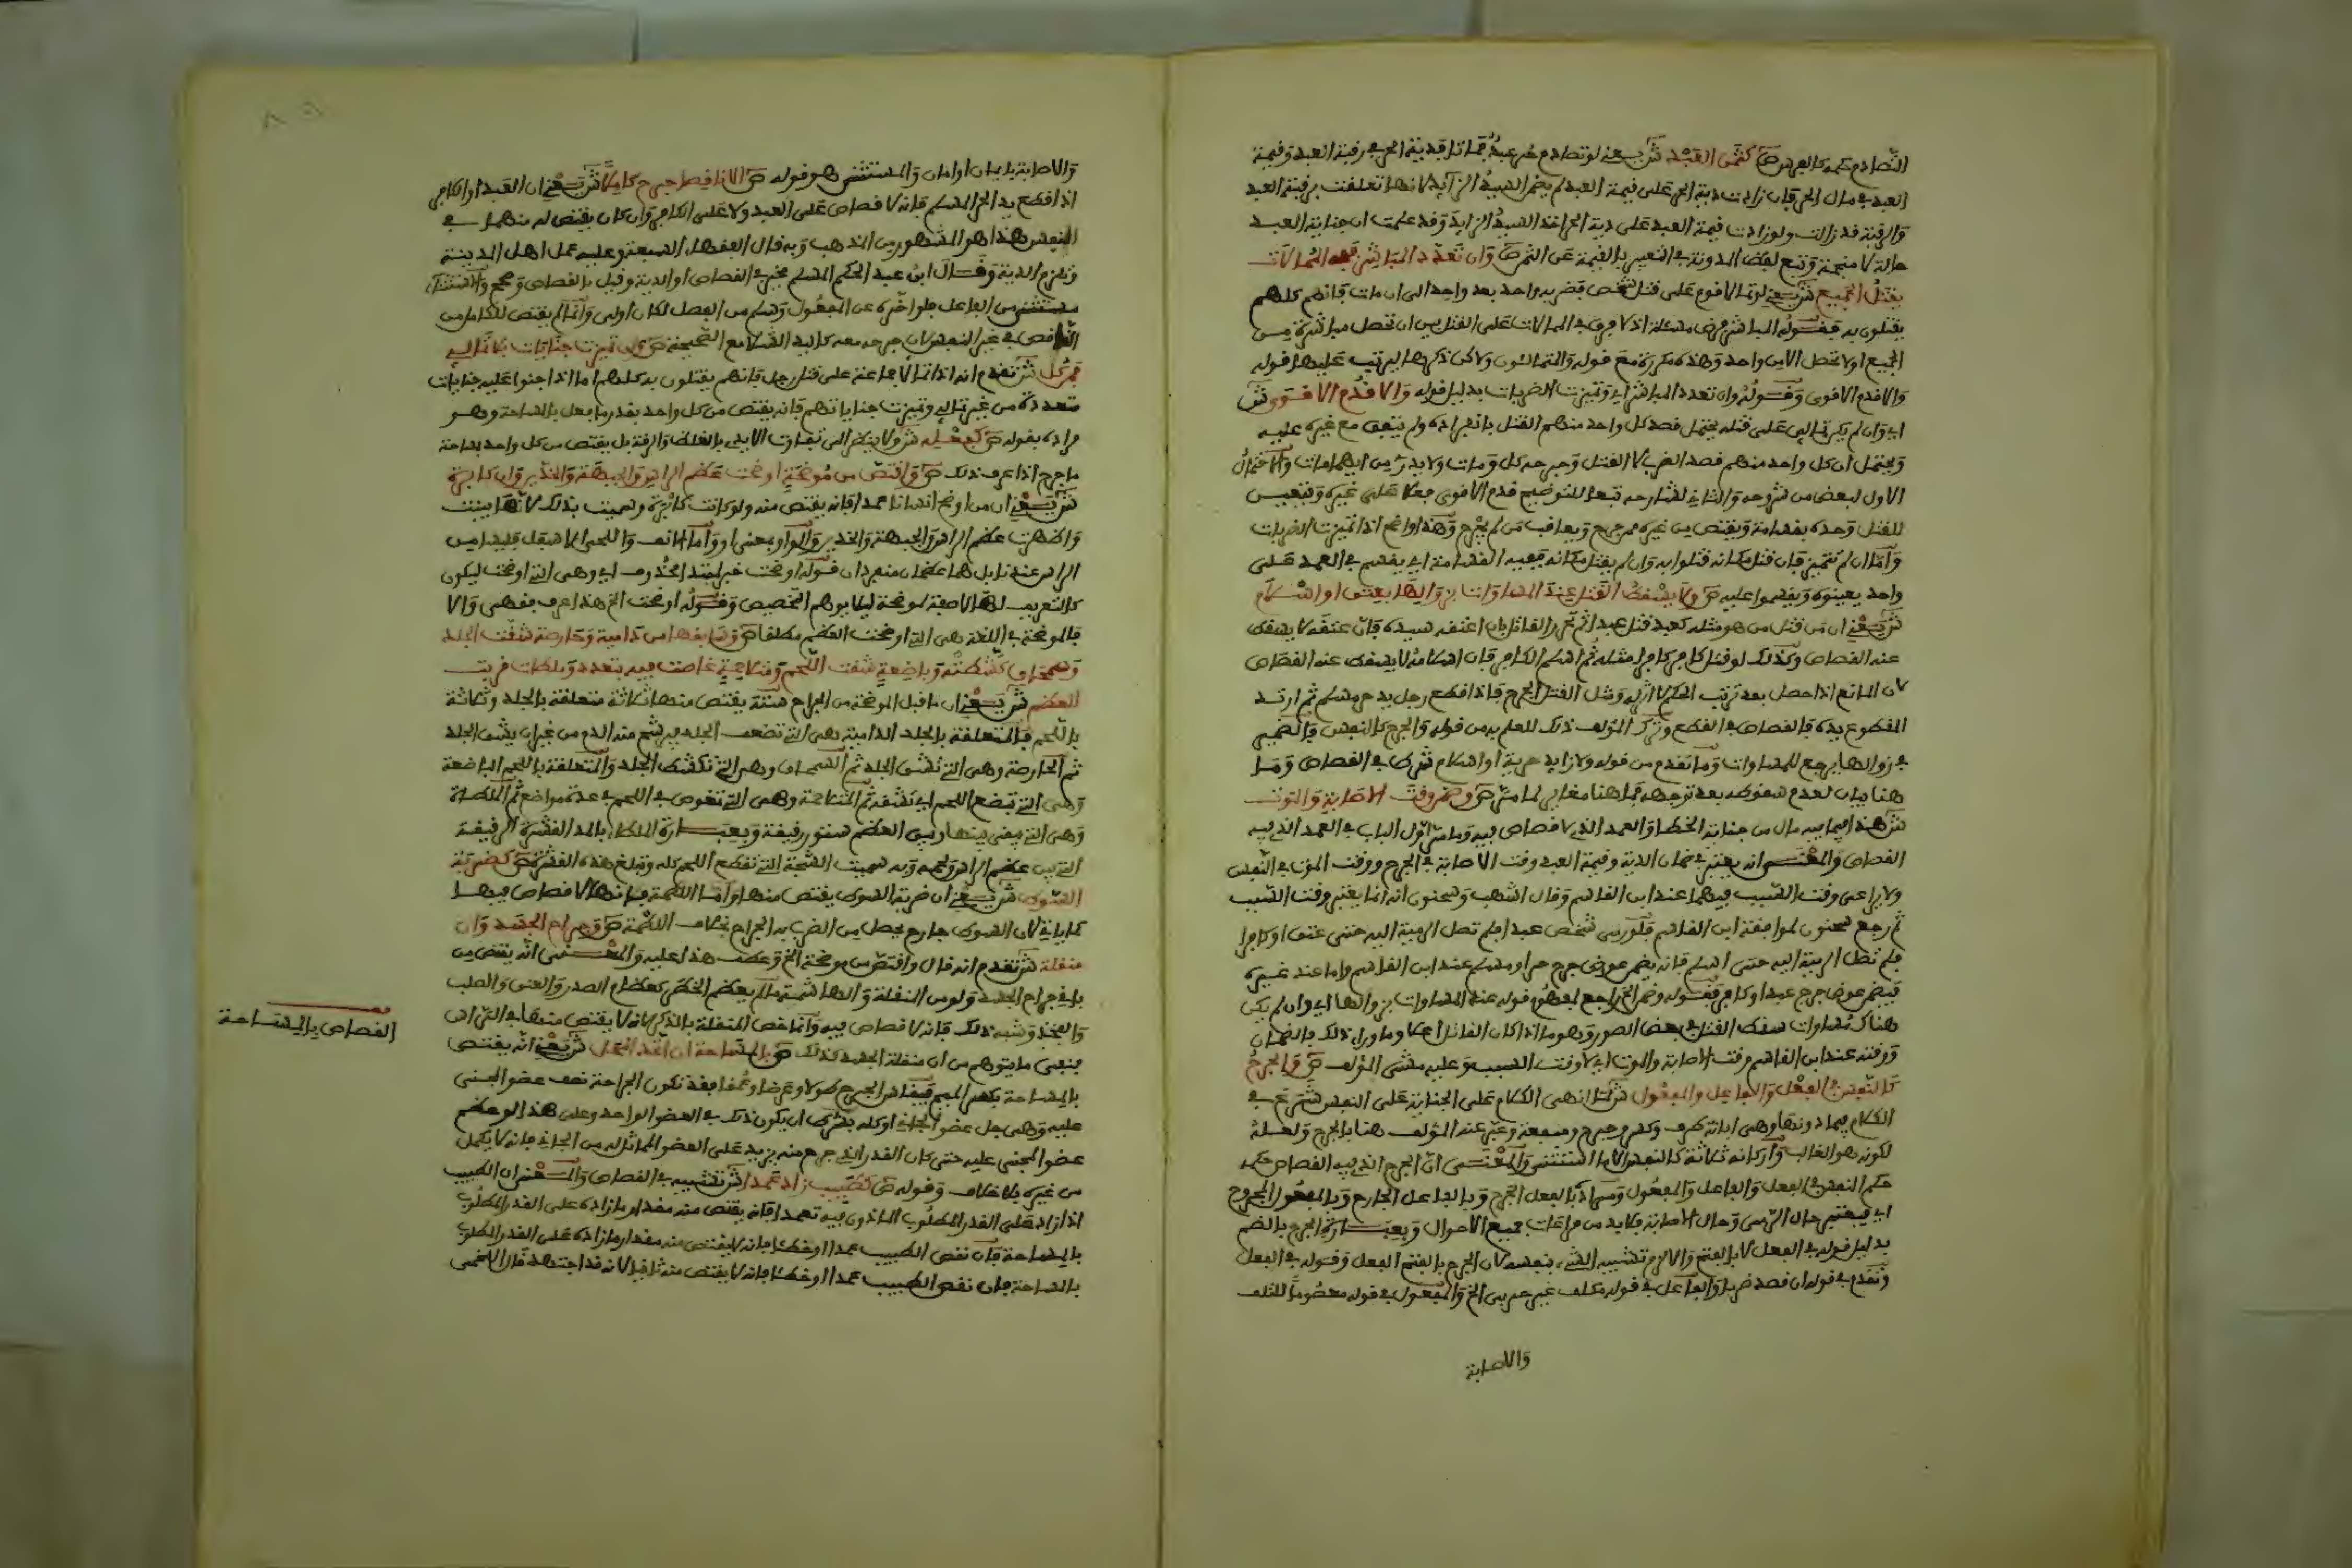 التصادم حكمه كالعرض ص كثمن العبد ش يعني لو تصادم حر عبد فماتا فدية الحر في رقبة العبد وقيمة
العبد في مال الحر فإن زادت دية الحر على قيمة العبد لم يضمن السيد الزائد لأنها تعلقت برقبة العبد
والرقبة قد زالت ولو زادت قيمة العبد على دية الحر أخذ السيد الزايد وقد علمت ان جناية العبد
حالة لا منجمة وتبع لفظ المدونة في التعبير بالقيمة عن الثمن ص وان تعدد المباشر ففي الممالات
يقتل الجميع ش يعني لو تمالا قوم على قتل شخص فضربه واحد بعد واحد الى ان مات فإنهم كلهم
يقتلون به فقوله المباشر فرض مسئلة اذ لا فرق في الممالات على القتل بين ان تحصل مباشرة من
الجميع او لا تحصل الا من واحد وهذه مكررة مع قوله والمتمالئون ولاكن ذكرها ليرتب عليها قوله
والا قدم الاقوى وقوله وان تعدد المباشر اي وتميزت الضربات بدليل قوله والا قدم الاقوى ش
اي وان لم يكن تمالئ على قتله يحتمل قصد كل واحد منهم القتل بانفراده ولم يتفق مع غيره عليه
ويحتمل ان كل واحد منهم قصد الضرب لا القتل وجرحه كل ومات ولا يدرى من ايهم مات والاحتمال
الاول لبعض من شروحه والثاني لشارحه تبعا للتوضيح قدم الاقوى فعلا على غيره وتعيين
للقتل وحده بقسامة ويقتص من غيره ممن جرح ويعاقب من لم يجرح وهذا واضح اذا تميزت الضربات
واما ان لم تتميز فإن قتل مكانه قتلوا به وان لم يقتل مكانه ففيه القسامة اي يقسم في العمد على
واحد يعينوه ويقسموا عليه ص ولا يسقط القتل عند المساوات بزوالها بعتق او اسلام
ش يعني ان من قتل من هو مثله كعبد قتل عبدا ثم تحرر القاتل بان اعتقه سيده فإن عتقه لا يسقط
عنه القصاص وكذلك لو قتل كافر كافرا مثله ثم اسلم الكافر فإن اسلامه لا يسقط عنه القصاص
لان المانع اذا حصل بعد ترتب الحكم لا اثر له ومثل القتل الجرح فإذا قطع رجل يد حر مسلم ثم ارتد
المقطوع يده فالقصاص في القطع وترك المؤلف ذلك للعلم به من قوله والجرح كالنفس فالضمير
في زوالها يرجع للمساوات وما تقدم من قوله ولا زايد حرية او اسلام شرط في القصاص وما
هنا بيان لعدم سقوطه بعد ترتبه فما هنا مغاير لما مر ص وضمن وقت الاصابة والموت
ش هذا فيما فيه مال من جناية الخطإ والعمد الذي لا قصاص فيه وما مر اول الباب في العمد الذي فيه
القصاص والمعنى انه يعتبر في ضمان الدية وقيمة العبد وقت الاصابة في الجرح ووقت الموت في النفس
ولا يراعى وقت السبب فيهما عند ابن القاسم وقال اشهب وسحنون انه انما يعتبر وقت السبب
ثم رجع سحنون لموافقة ابن القاسم فلو رمى شخص عبدا فلم تصل الرمية اليه حتى عتق او كافرا
فلم تصل الرمية اليه حتى اسلم فإنه يضمن عوض جرح حر او مسلم عند ابن القاسم واما عند غيره
فيضمن عوض جرح عبد او كافر فقوله وضمن الخ راجع لمفهوم قوله عند المساوات بزوالها اي وان لم يكن
هناك مساوات سقط القتل في بعض الصور وهو ما اذا كان القاتل اعلا وما وراء ذلك بالضمان
ووقته عند ابن القاسم وقت الاصابة والموت اي لا وقت السبب وعليه مشى المؤلف ص والجرح
كالنفس في الفعل والفاعل والمفعول ش لما انهى الكلام على الجناية على النفس شرع في
الكلام فيما دونها وهي ابانة طرف وكسر وجرح ومنفعة وعبر عنه المؤلف هنا بالجرح ولعله
لكونه هو الغالب واركانه ثلاثة كالنفس الا ما استثنى والمعنى ان الجرح الذي فيه القصاص حكمه
حكم النفس في الفعل والفاعل والمفعول ومراده بالفعل الجرح وبالفاعل الجارح وبالمفعول المجروح
اي فيعتبر حال الرمي وحال الاصابة فلا بد من مراعات جميع الاحوال وبعبارة الجرح بالضم
بدليل قوله في الفعل لا بالفتح والا لزم تشبيه الشيء بنفسه لان الجرح بالفتح الفعل وقوله في الفعل
وتقدم في قوله ان قصد ضربا والفاعل في قوله مكلف غير حربي الخ والمفعول في قوله معصوما للتلف
والاصابة
والاصابة بايمان او امان والمستثنى هو قوله ص الا ناقصا جرح كاملا ش يعني ان العبد او الكافر
اذا قطع يد الحر المسلم فإنه لا قصاص على العبد ولا على الكافر وان كان يقتص له منهما في
النفس هذا هو المشهور من المذهب وبه قال الفقهاء السبعة وعليه عمل اهل المدينة
وتلزم الدية وقال ابن عبد الحكم المسلم مخير في القصاص او الدية وقيل بالقصاص وصحح والاستثناء
مستثنى من الفاعل فلو اخره عن المفعول وسلم من الفصل لكان اولى وانما لم يقتص للكامل من
الناقص في غير النفس لان جرحه معه كاليد الشلا مع الصحيحة ص وان تميزت جنايات بلا تمالئ
فمن كل ش تقدم انه اذا تمالا جماعة على قتل رجل فإنهم يقتلون به كلهم اما اذا جنوا عليه جنايات
متعددة من غير تمالئ وتميزت جناياتهم فإنه يقتص من كل واحد بقدر ما فعل بالمساحة وهو
مراده بقوله ص كفعله ش ولا ينظر الى تفاوت الايدي بالغلظ والرقة بل يقتص من كل واحد بمساحة
ما جرح اذا عرف ذلك ص واقتص من موضحة اوضحت عظم الراس والجبهة والخدين وان كابرة
ش يعني ان من اوضح انسانا عمدا فإنه يقتص منه ولو كانت كابرة وسميت بذلك لانها بينت
واظهرت عظم الراس والجبهة والخدين والواو بمعنى او واما الانف واللحي الاسفل فليسا من
الراس عندنا بل هما عظمان منفردان قوله اوضحت خبر مبتدإ محذوف اي وهي التي اوضحت ليكون
كالتعريف لها لا صفة لموضحة ليلا يوهم التخصيص وقوله اوضحت الخ هذا عرف فقهي والا
فالموضحة في اللغة هي التي اوضحت العظم مطلقا ص وسابقها من دامية وحارصة شقت الجلد
وسمحاق كشطته وباضعة شقت اللحم ومتلاحمة غاصت فيه بتعدد وملطات قربت
للعظم ش يعني ان ما قبل الموضحة من الجراح ستة يقتص منها ثلاثة متعلقة بالجلد وثلاثة
باللحم فالمتعلقة بالجلد الدامية وهي التي تضعف الجلد فيرشح منه الدم من غير ان يشق الجلد
ثم الحارصة وهي التي تشق الجلد ثم السمحاق وهي التي تكشط الجلد والمتعلقة باللحم الباضعة
وهي التي تبضع اللحم اي تشقه ثم المتلاحمة وهي التي تغوص في اللحم في عدة مواضع ثم الملطاة
وهي التي يبقى بينها وبين العظم ستور رقيقة وبعبارة الملطاء بالمد القشرة الرقيقة
التي بين عظم الراس ولحمه وبه سميت الشجة التي تقطع اللحم كله وتبلغ هذه القشرة ص كضربة
السوط ش يعني ان ضربة السوط يقتص منها واما اللطمة فإنها لا قصاص فيها
كما ياتي لان السوط جارح يحصل من الضرب به الجراح بخلاف اللطمة ص وجراح الجسد وان
منقلة ش تقدم انه قال واقتص من موضحة الخ وعطف هذا عليه والمعنى انه يقتص من
باقي جراح الجسد ولو من المنقلة والهاشمة ما لم يعظم الخطر كعظام الصدر والعنق والصلب
والفخذ وشبه ذلك فإنه لا قصاص فيه وانما خص المنقلة بالذكر لانه لا يقتص منها في الراس
فنفى ما يتوهم من ان منقلة الجسد كذلك ص بالمساحة ان اتحد المحل ش يعني انه يقتص
بالمساحة بكسر الميم فيقاس الجرح طولا وعرضا وعمقا فقد تكون الجراحة نصف عضو المجني
عليه وهي جل عضو الجاني او كله بشرط ان يكون ذلك في العضو الواحد وعلى هذا لو عظم
عضو المجني عليه حتى كان القدر الذي جرح منه يزيد على العضو المماثل له من الجاني فإنه لا يكمل
من غيره بلا خلاف وقوله ص كطبيب زاد عمدا ش تشبيه في القصاص والمعنى ان الطبيب
اذا زاد على القدر المطلوب الماذون فيه تعمدا فإنه يقتص منه مقدار ما زاده على القدر المطلوب
بالمساحة فإن نقص الطبيب عمدا او خطئا فإنه لا يقتص منه مقدار ما زاده على القدر المطلوب
بالمساحة فإن نقص الطبيب عمدا او خطئا فإنه لا يقتص منه ثانيا لانه قد اجتهد قال اللخمي
القصاص بالمساحة